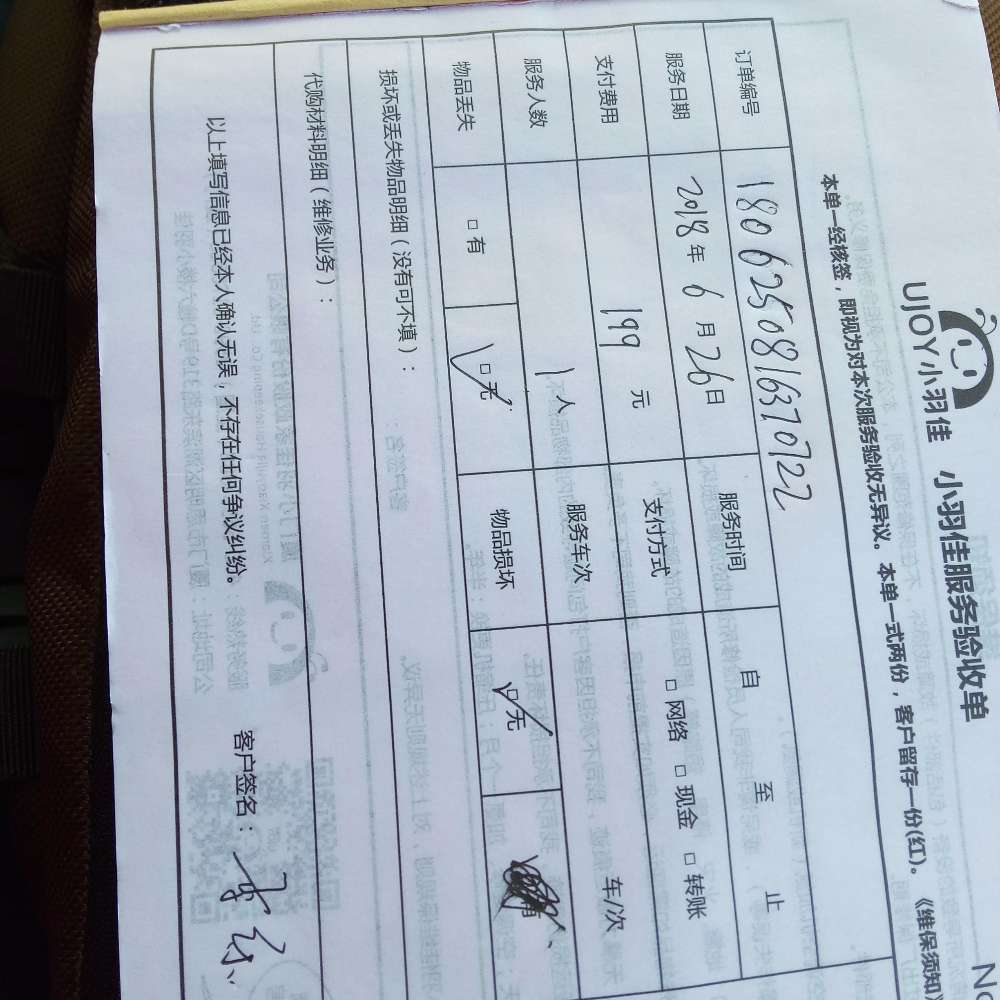 UJOY小羽佳 小羽佳服务验收单
本单一经核签，即视为对本次服务验收无异议。本单一式两份，客户留存一份(红)。《维保须知
订单编号 1806250816370722 服务时间 自 至 止
服务日期 2018年 6月 26日 支付方式 □ 网络 □ 现金 □ 转账
支付费用 199 元 服务车次 车/次
服务人数 1人
物品丢失 □ 有 ☑无 物品损坏 ☑无
损坏或丢失物品明细（没有可不填）：
代购材料明细（维修业务）：
以上填写信息已经本人确认无误，不存在任何争议纠纷。 客户签名：